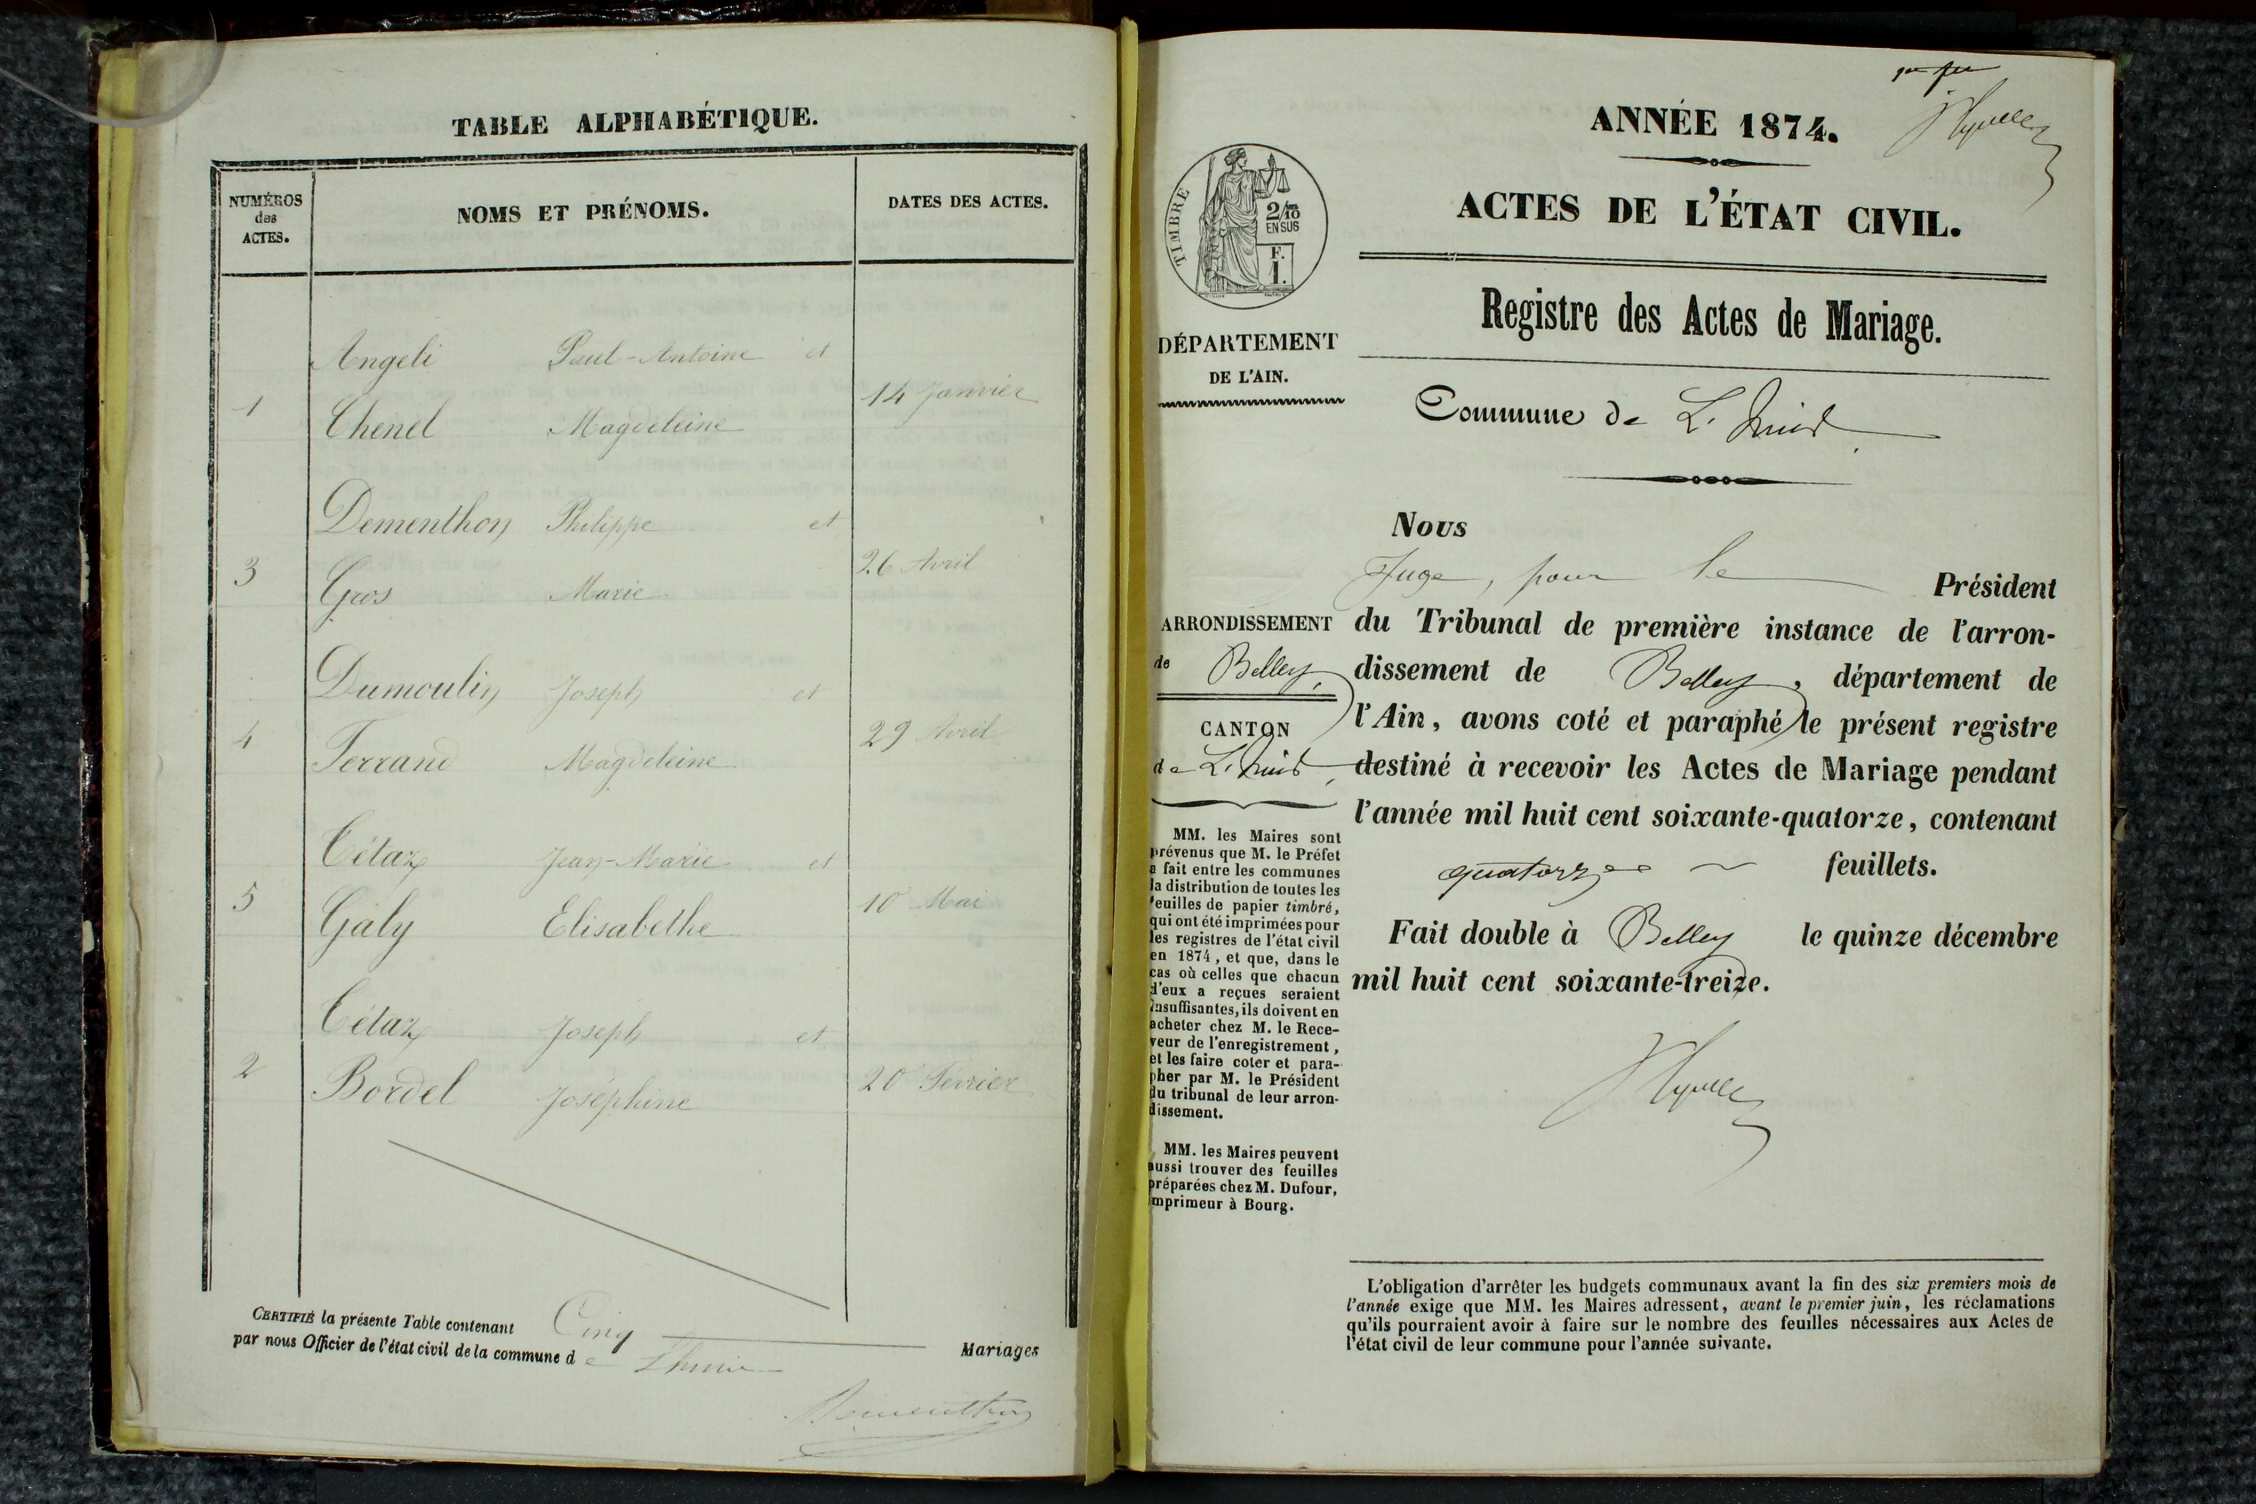 TABLE ALPHABÉTIQUE.
NUMÉROS
des
ACTES.
NOMS ET PRÉNOMS.
DATES DES ACTES.
Angeli Paul-Antoine et
1 14 Janvier
Chenel Magdeleine
Dementhon Philippe et
3 26 Avril
Gros Marie
Dumoulin Joseph et
4 29 Avril
Ferrand Magdeleine
Tétaz Jean-Marie et
5 10 Mai
Galy Elisabethe
Tétaz Joseph et
2 20 Février
Bordel Joséphine
CERTIFIÉ la présente Table contenant Cinq Mariages
par nous Officier de l'état civil de la commune de Lhuis
Dementhon
ANNÉE 1874.
ACTES DE L'ÉTAT CIVIL.
Registre des Actes de Mariage.
Commune de L'huis
TIMBRE
2/10
EN SUS
F.
1.
DÉPARTEMENT
DE L'AIN.
ARRONDISSEMENT
de Belley,
CANTON
de L'huis,
MM. les Maires sont
prévenus que M. le Préfet
a fait entre les communes
la distribution de toutes les
feuilles de papier timbré,
qui ont été imprimées pour
les registres de l'état civil
en 1874, et que, dans le
cas où celles que chacun
d'eux a reçues seraient
insuffisantes, ils doivent en
acheter chez M. le Rece-
veur de l'enregistrement,
et les faire coter et para-
pher par M. le Président
du tribunal de leur arron-
dissement.
MM. les Maires peuvent
aussi trouver des feuilles
préparées chez M. Dufour,
imprimeur à Bourg.
Nous
Juge, pour le Président
du Tribunal de première instance de l'arron-
dissement de Belley, département de
l'Ain, avons coté et paraphé le présent registre
destiné à recevoir les Actes de Mariage pendant
l'année mil huit cent soixante-quatorze, contenant
quatorze feuillets.
Fait double à Belley le quinze décembre
mil huit cent soixante-treize.
L'obligation d'arrêter les budgets communaux avant la fin des six premiers mois de
l'année exige que MM. les Maires adressent, avant le premier juin, les réclamations
qu'ils pourraient avoir à faire sur le nombre des feuilles nécessaires aux Actes de
l'état civil de leur commune pour l'année suivante.